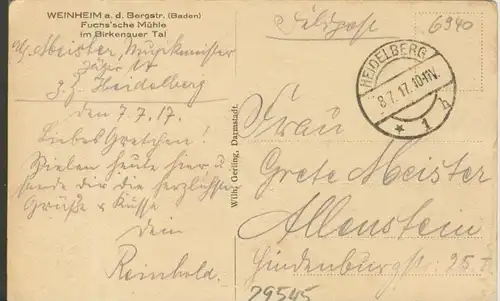 WEINHEIM a. d. Bergstr. (Baden)
Fuchs'sche Mühle
im Birkenauer Tal
Feldpost
6940
Meister, Musikmeister
Jäger 14
z. Z. Heidelberg
den 7.7.17.
Liebes Gretchen!
Spielen heute hier u.
sende dir die herzlichsten
Grüße u Küsse
Dein
Reinhold.
Wilh. Gerling, Darmstadt.
HEIDELBERG
8.7.17. 10-11V.
* 1 h
Frau
Grete Meister
Allenstein
Hindenburgstr. 25 I
79545